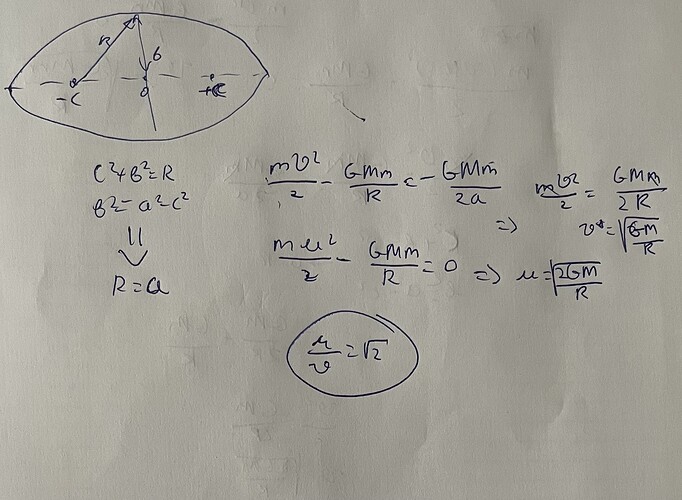 R
b
-C
0
+C
C²+b²=R
b²=a²-c²
⇓
R=a
mv²/2 - GMm/R = - GMm/2a
=> mv²/2 = GMm/2R
v=√GM/R
mu²/2 - GMm/R = 0 => u=√2GM/R
u/v=√2